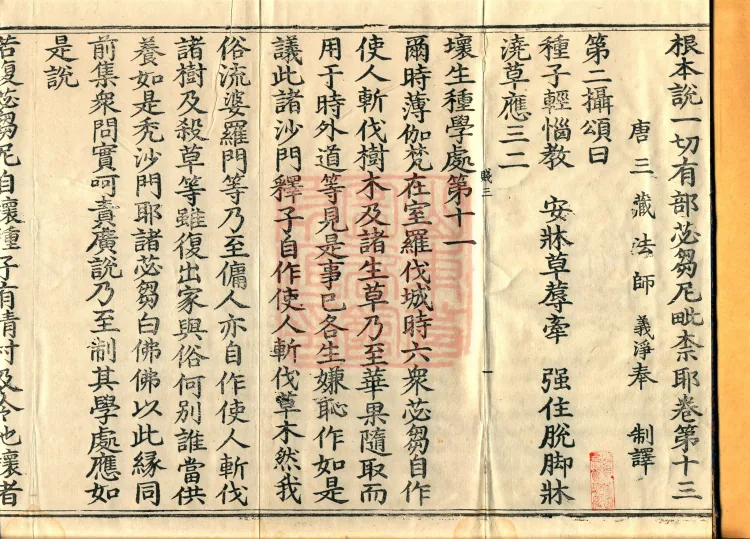 根本說一切有部苾芻尼毗柰耶卷第十三
唐三藏法師義淨奉 制譯
第二攝頌曰
種子輕惱教 安牀草蓐牽 强住脫脚牀
澆草應三二
壞生種學處第十一
三 一
爾時薄伽梵在室羅伐城時六衆苾芻自作
使人斬伐樹木及諸生草乃至華果隨取而
用于時外道等見是事已各生嫌恥作如是
議此諸沙門釋子自作使人斬伐草木然我
俗流婆羅門等乃至傭人亦自作使人斬伐
諸樹及殺草等雖復出家與俗何別誰當供
養如是禿沙門耶諸苾芻白佛佛以此緣同
前集衆問實呵責廣說乃至制其學處應如
是說
若復苾芻尼自壞種子有情村及令他壞者